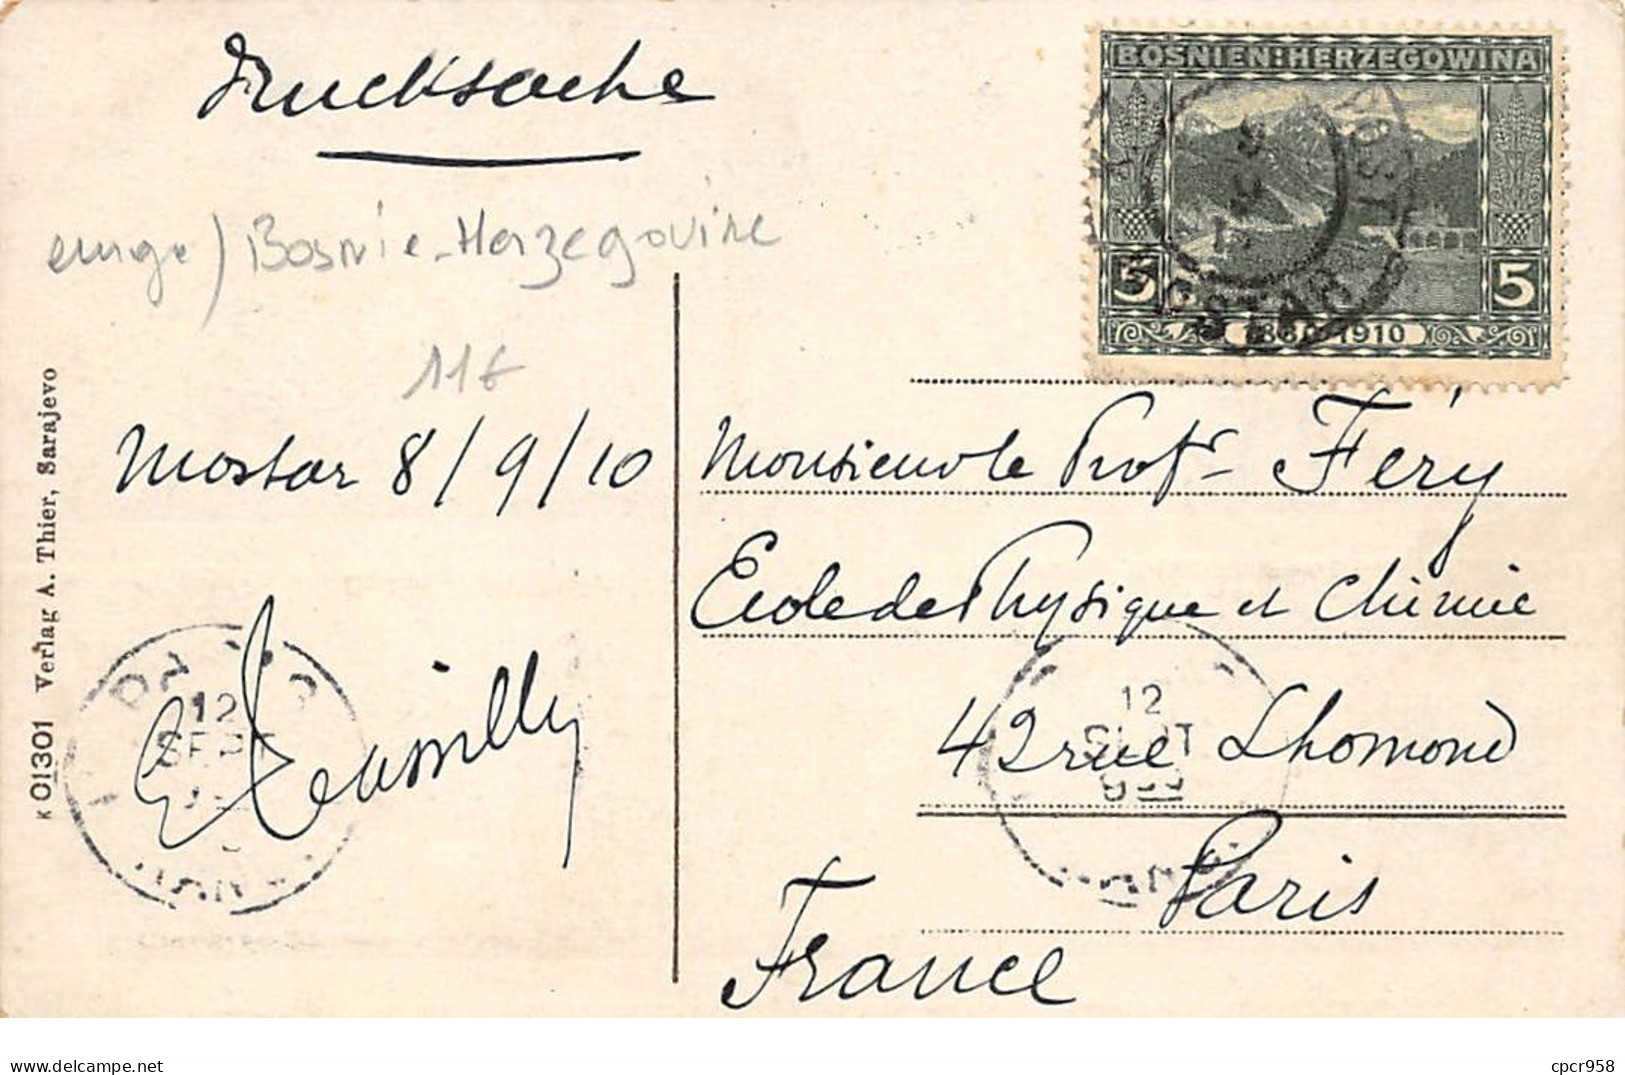 Drucksache
BOSNIEN-HERZEGOWINA
5 5
1830 1910
Bosnie-Herzegovine
Mostar 8/9/10
Monsieur le Prof Féry
Ecole de Physique et Chimie
42 rue Lhomond
Paris
France
12
SEPT
12
SEPT
K 01301 Verlag A. Thier, Sarajevo
delcampe.net
cpcr958